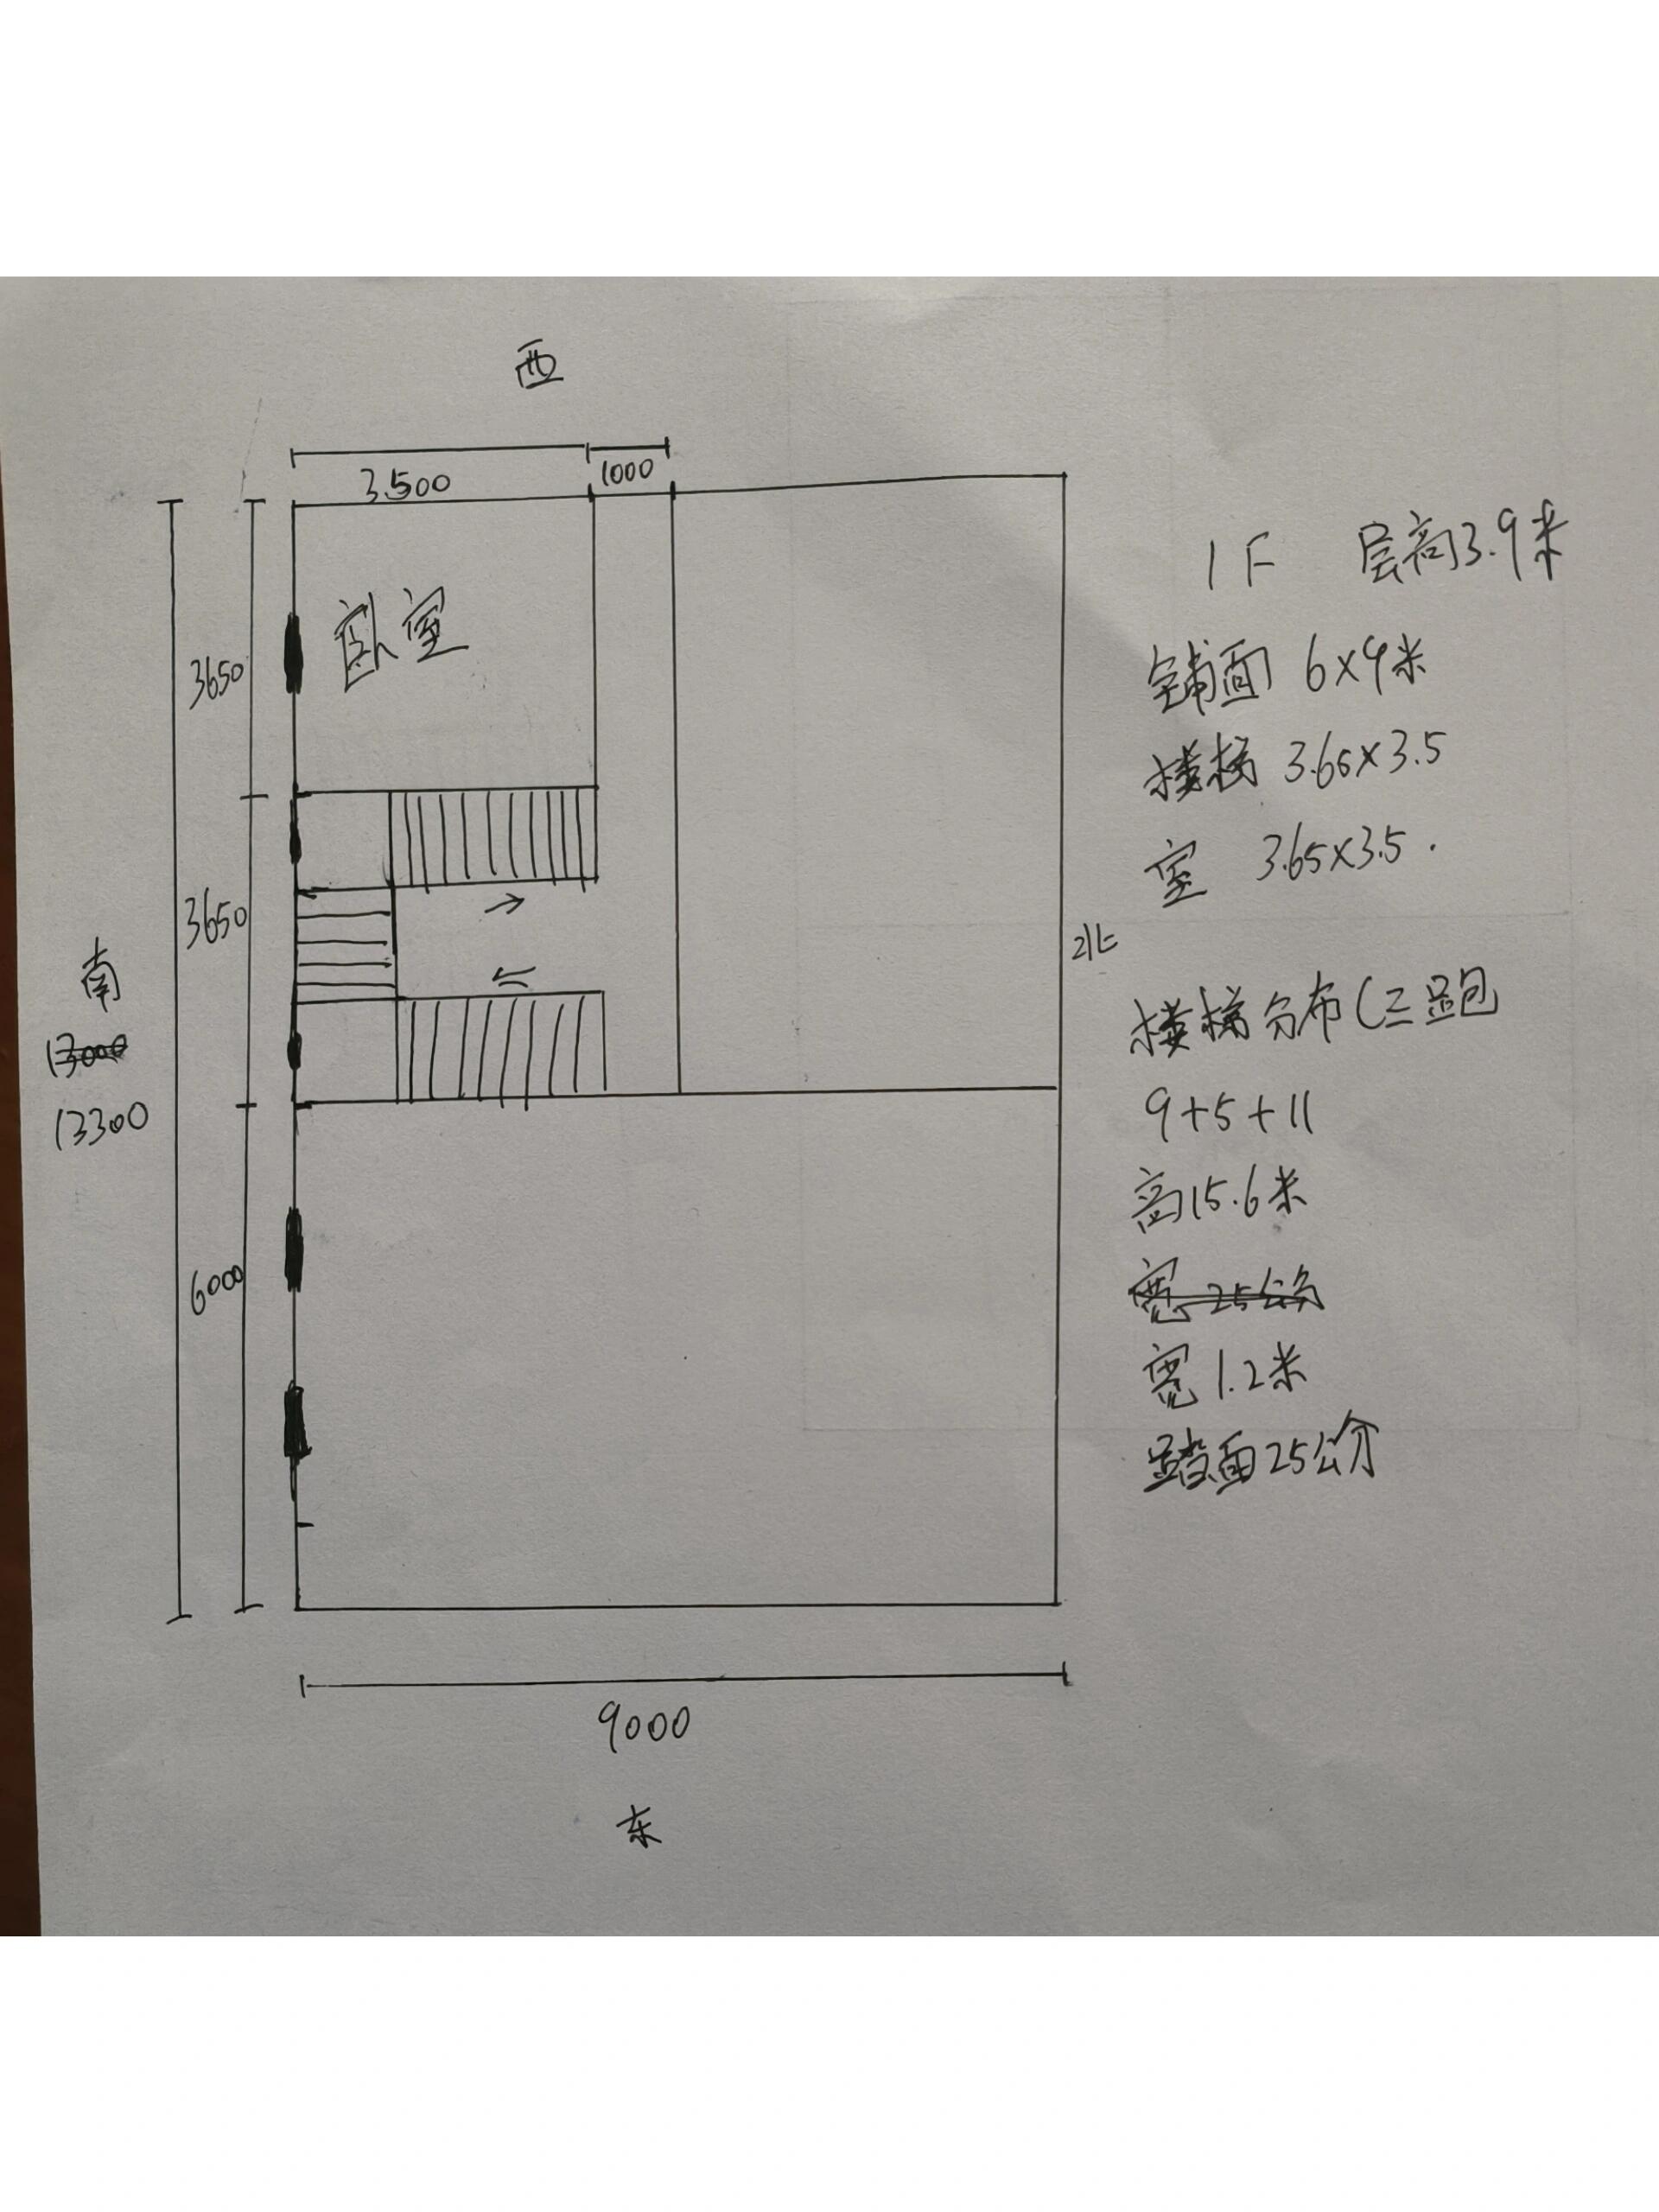 西
3.500
1000
1F 层高3.9米
3650
卧室
铺面 6x9米
楼梯 3.65x3.5
室 3.65x3.5.
3650
南
北
13000
13300
楼梯分布(三跑
9+5+11
高15.6米
宽 25公分
宽1.2米
踏面25公分
6000
9000
东